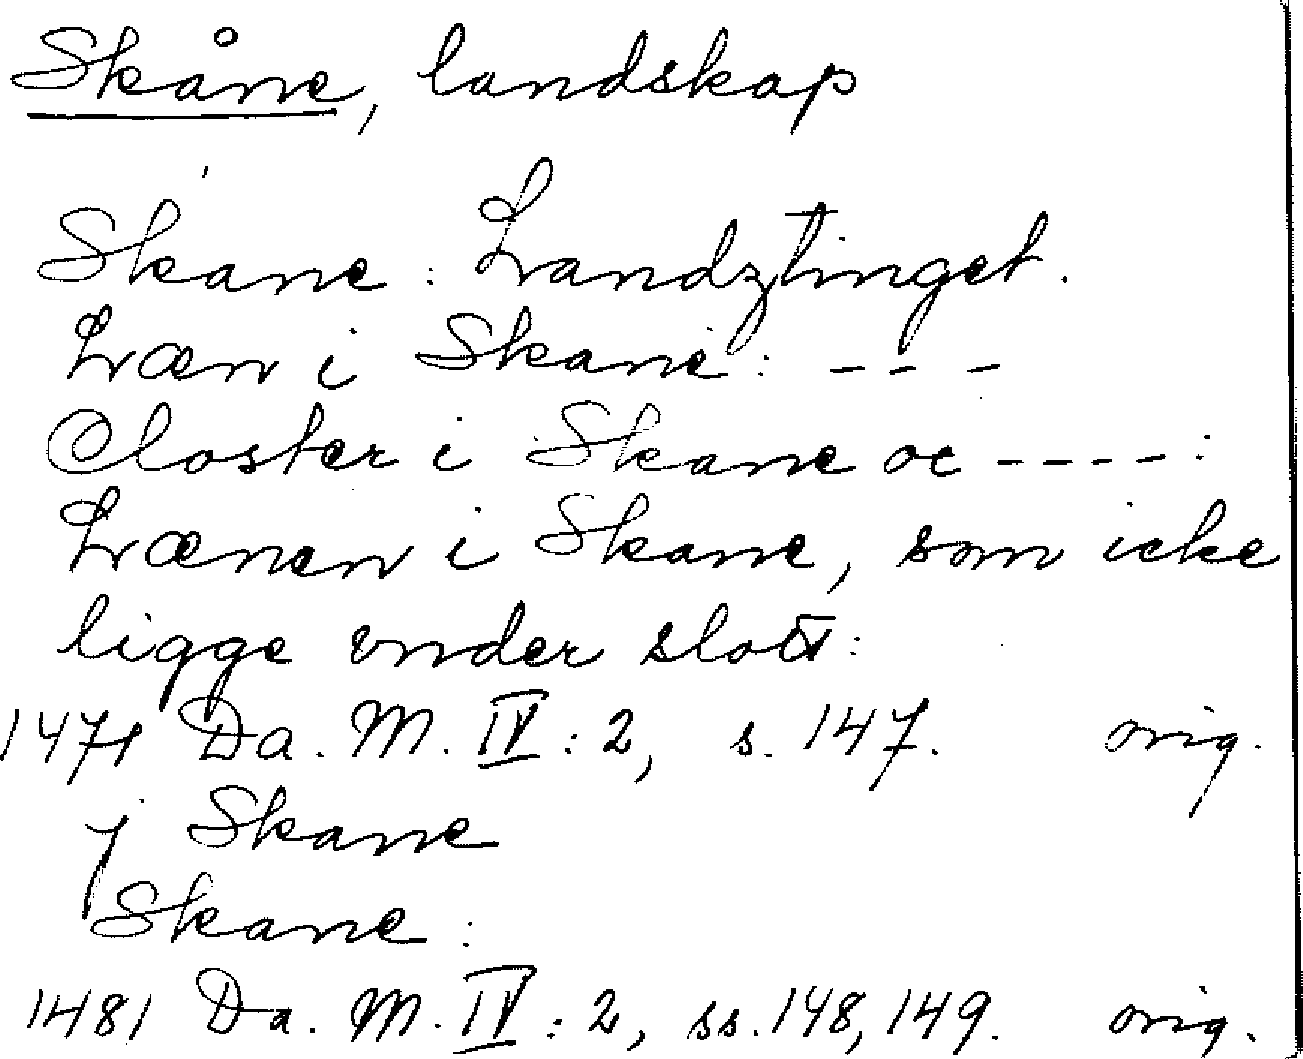 Skåne, landskap
Skane: Landztinget.
Læn i Skane: - - -
Closter i Skane oc - - - -:
Lænen i Skane, som icke
ligge vnder slott:
1471 Da. M. IV: 2, s. 147. orig.
j Skane
Skane:
1481 Da. M. IV: 2, ss. 148, 149. orig.